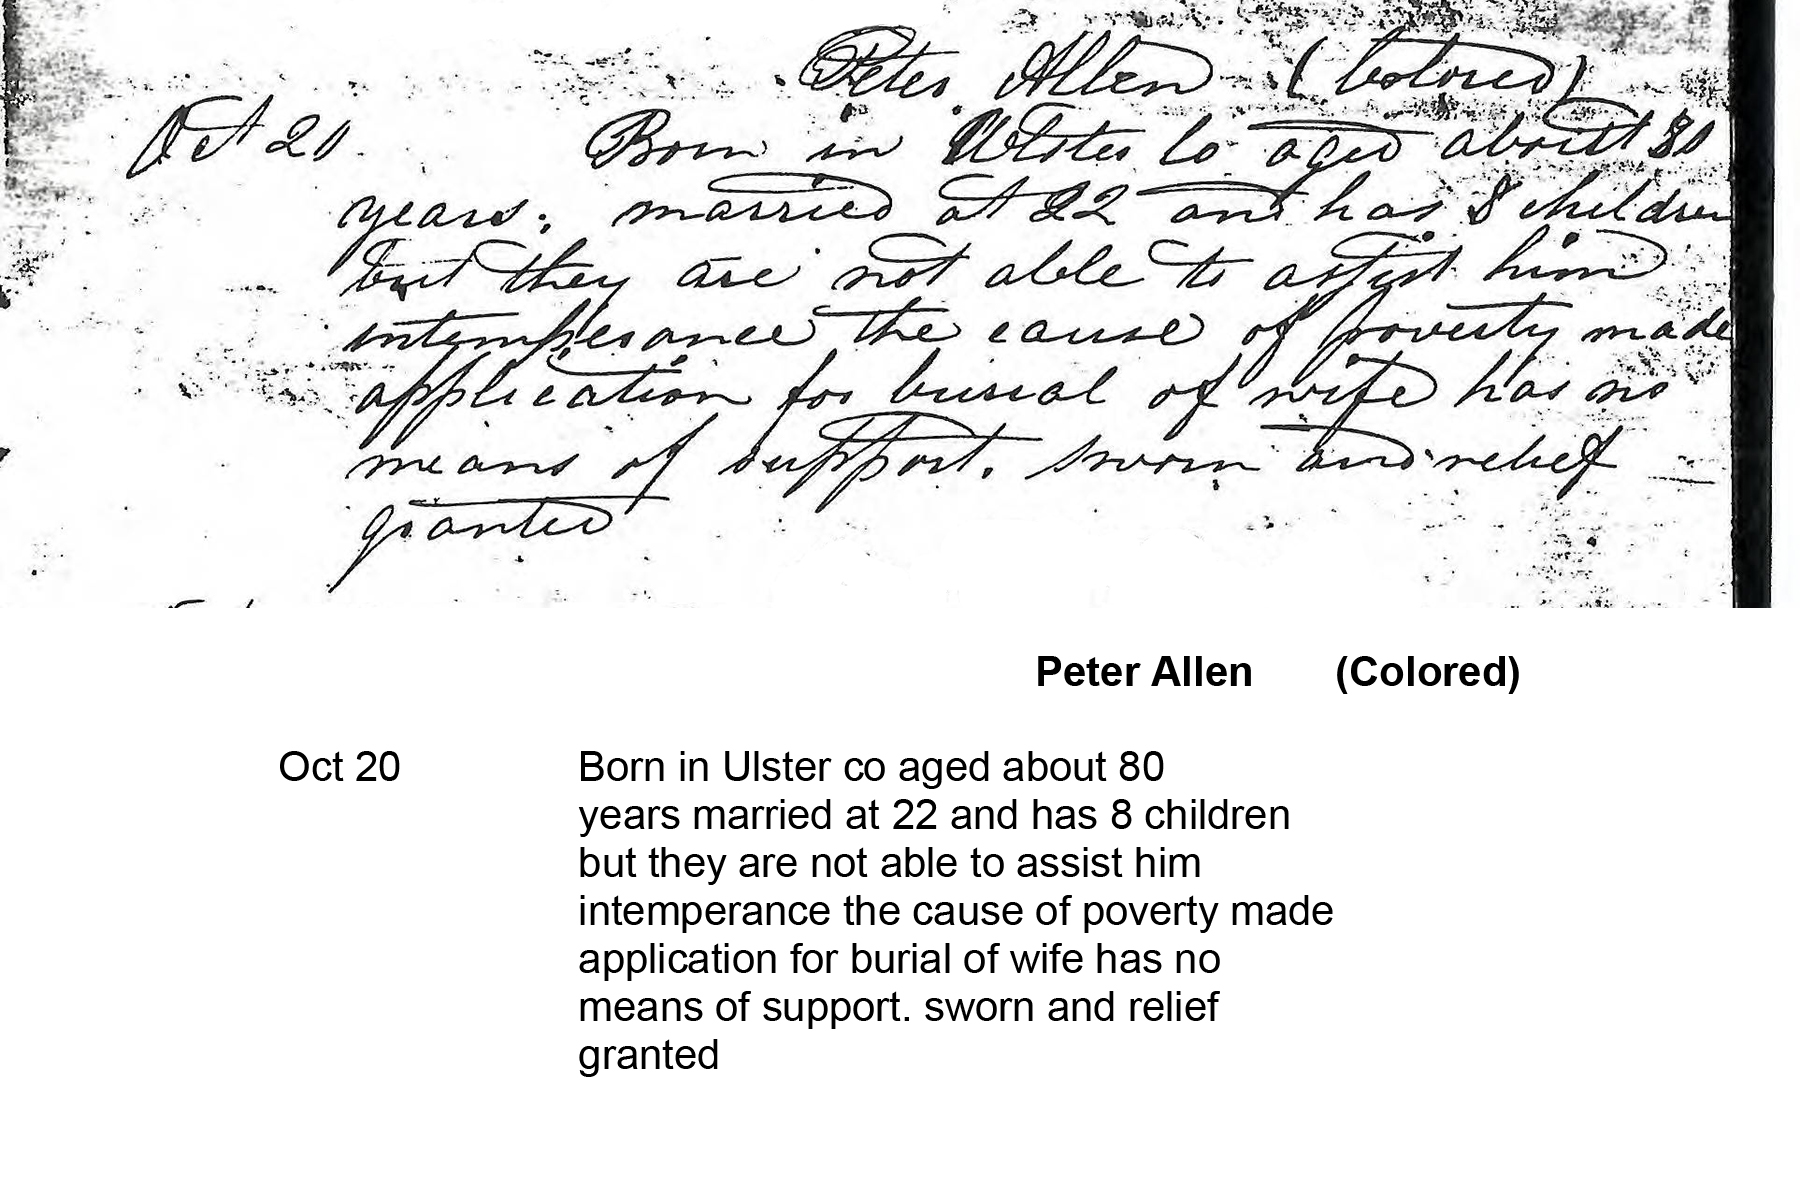 Peter Allen (Colored)
Oct 20 Born in Ulster Co aged about 80
years. married at 22 and has 8 children
but they are not able to assist him
intemperance the cause of poverty made
application for burial of wife has no
means of support. sworn and relief
granted
Peter Allen (Colored)
Oct 20 Born in Ulster co aged about 80
years married at 22 and has 8 children
but they are not able to assist him
intemperance the cause of poverty made
application for burial of wife has no
means of support. sworn and relief
granted